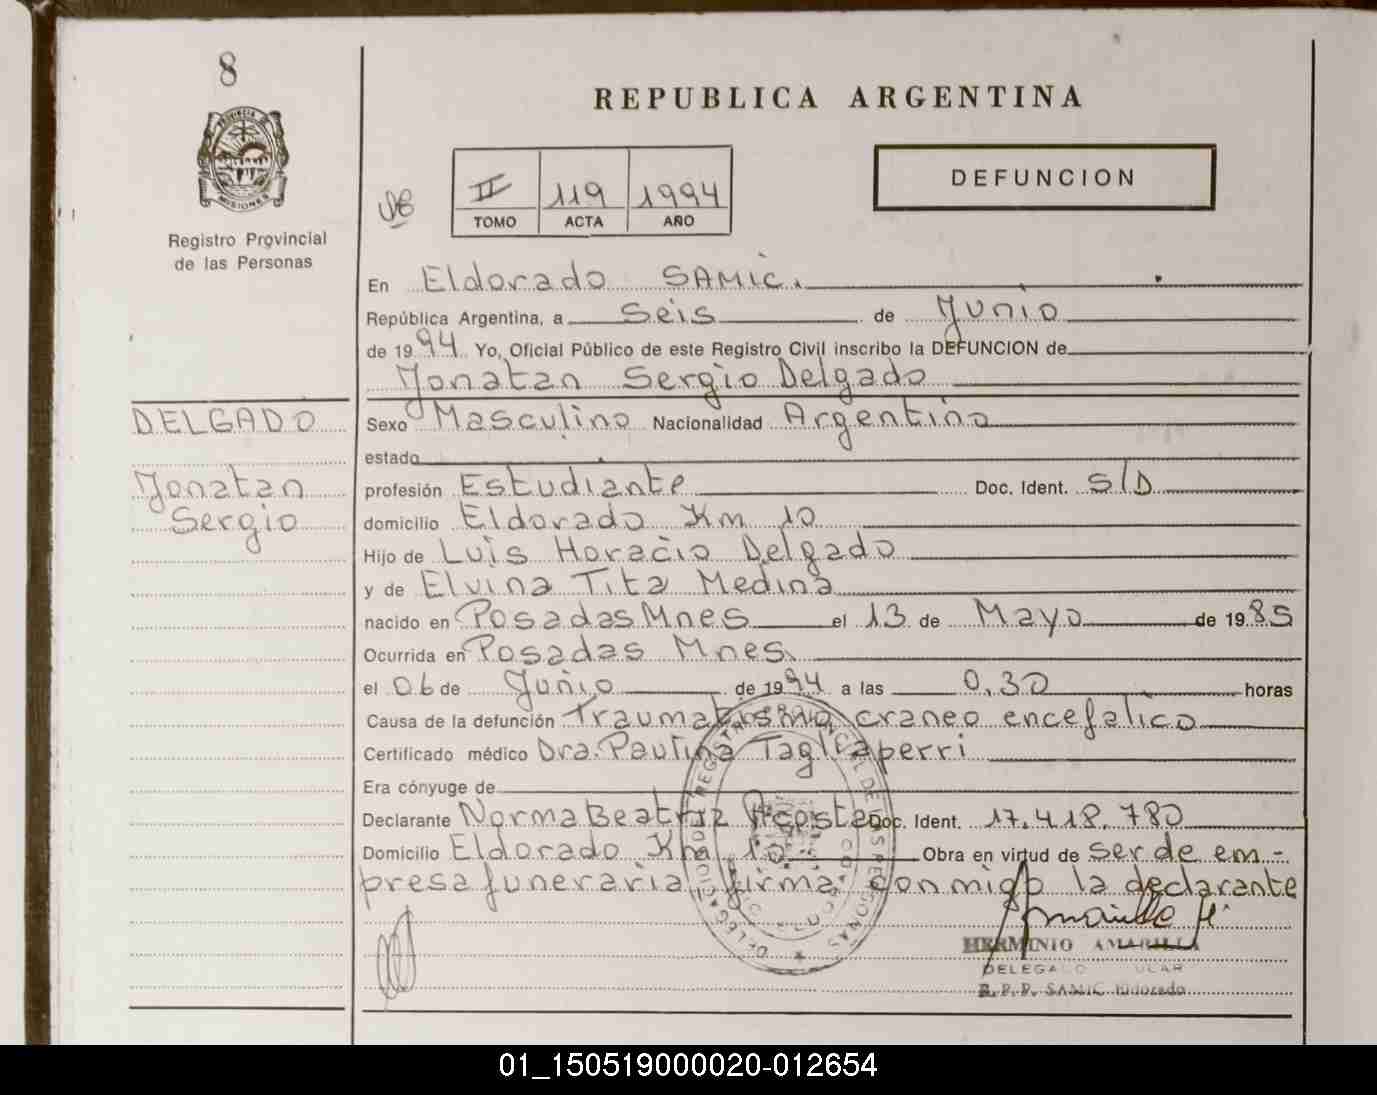 8
PROVINCIA DE
MISIONES
Registro Provincial
de las Personas
REPUBLICA ARGENTINA
DEFUNCION
II 119 1994
TOMO ACTA AÑO
En Eldorado SAMIC.
República Argentina, a Seis de Junio
de 1994 Yo, Oficial Público de este Registro Civil inscribo la DEFUNCION de
Jonatan Sergio Delgado
DELGADO
Jonatan
Sergio
Sexo Masculino Nacionalidad Argentino
estado
profesión Estudiante Doc. Ident. S/D
domicilio Eldorado Km 10
Hijo de Luis Horacio Delgado
y de Elvina Tita Medina
nacido en Posadas Mnes el 13 de Mayo de 1985
Ocurrida en Posadas Mnes.
el 06 de Junio de 1994 a las 0,30 horas
Causa de la defunción Traumatismo craneo encefalico
Certificado médico Dra. Paulina Tagliaperri
Era cónyuge de
Declarante Norma Beatriz Acosta Doc. Ident. 17.418.780
Domicilio Eldorado Km 10 Obra en virtud de ser de em-
presa funeraria, firma conmigo la declarante
HERMINIO AMARILLA
DELEGADO TITULAR
R.P.P. SAMIC Eldorado
DELEGACION REGISTRO PROVINCIAL DE LAS PERSONAS
01_150519000020-012654